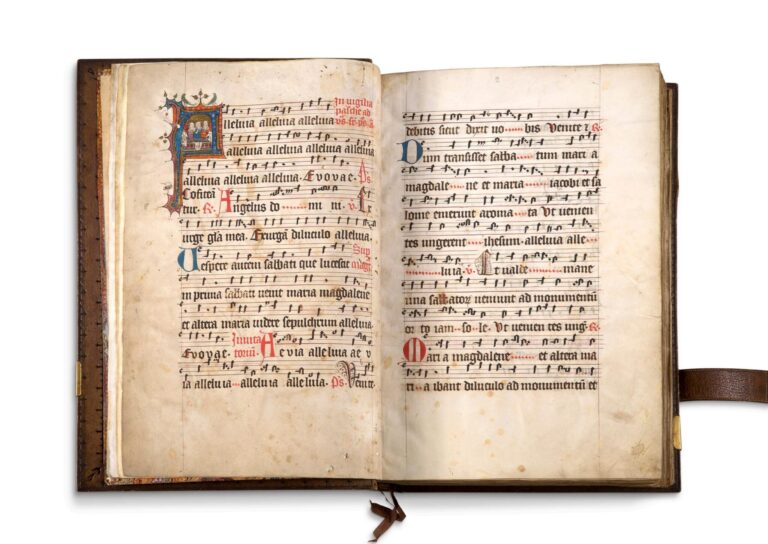 In vigilia
pasche ad
Alleluia alleluia alleluia
alleluia alleluia alleluia alleluia
alleluia alleluia alleluia. Evovae. Ps
Cōfitem̄
tur. R. Angelus do mi ni. v. Ex
urge gl̄a mea. Exurgā diluculo alleluia.
Sup
Uespere autem sabbati que lucescit magn̄
in prima sabbati uenit maria magdalene
et altera maria uidere sepulchrum alleluia
Evovae. Inuita
toriū. Aevia alleluia ae v
ia alleluia alleluia alleluia. Ps. Venite.
debitis sicut dixit uo bis Venite z R.
Dum transisset sabba tum mari a
magdale ne et maria iacobi et sa
lome emerunt aroma ta Ut uenien
tes ungerent ihesum. alleluia alle
luia. v. Et ualde mane
una sabbatoꝝ ueniunt ad monumentū
orto iam so le. Ut uenien tes ung. R.
Mari a magdalene et altera ma
ri a ibant diluculo ad monumentū et